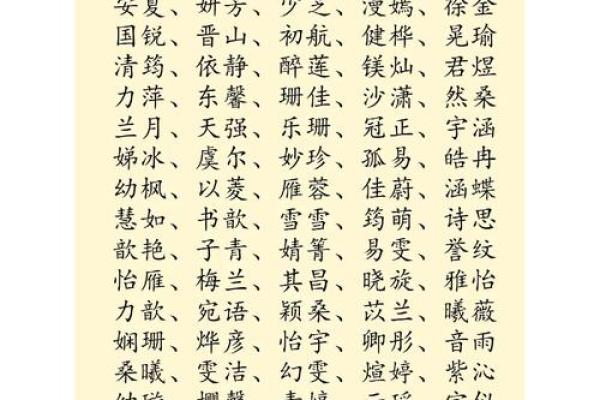 安夏、妍芳、少芝、漫嫣、徐金
国锐、晋山、初航、健桦、晃瑜
清筠、依静、醉莲、镁灿、君煜
力萍、东馨、珊佳、沙潇、然桑
兰月、天强、乐珊、冠正、宇涵
娣冰、虞尔、妙珍、孤易、皓冉
幼枫、以菱、雁蓉、佳蔚、涵蝶
慧如、书歆、雪雪、筠萌、诗思
歆艳、子青、婧箐、易雯、誉纹
怡雁、梅兰、其昌、晓旋、雅怡
力歆、宛语、颖桑、苡兰、曦薇
娴珊、烨彦、怡宇、卿彤、音雨
桑曦、雯洁、幻雯、煊婷、紫沁